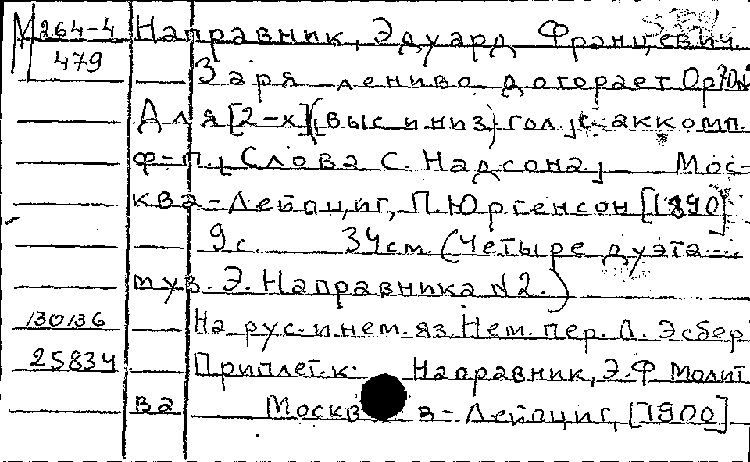 М 264-4 Направник, Эдуард Францевич.
479 Заря лениво догорает Op
Для [2-х] (выс. и низ) гол., с аккомп.
ф-п., Слова С. Надсона, Мос-
ква-Лейпциг, П. Юргенсон [1890]
9 с. 34 см (Четыре дуэта
муз. Э. Направника №2.)
130136 На рус. и нем. яз. Нем. пер. Эсбер
25834 Приплет. к: Направник, Э.Ф Молит
ва Москв в-Лейпциг, [1900]